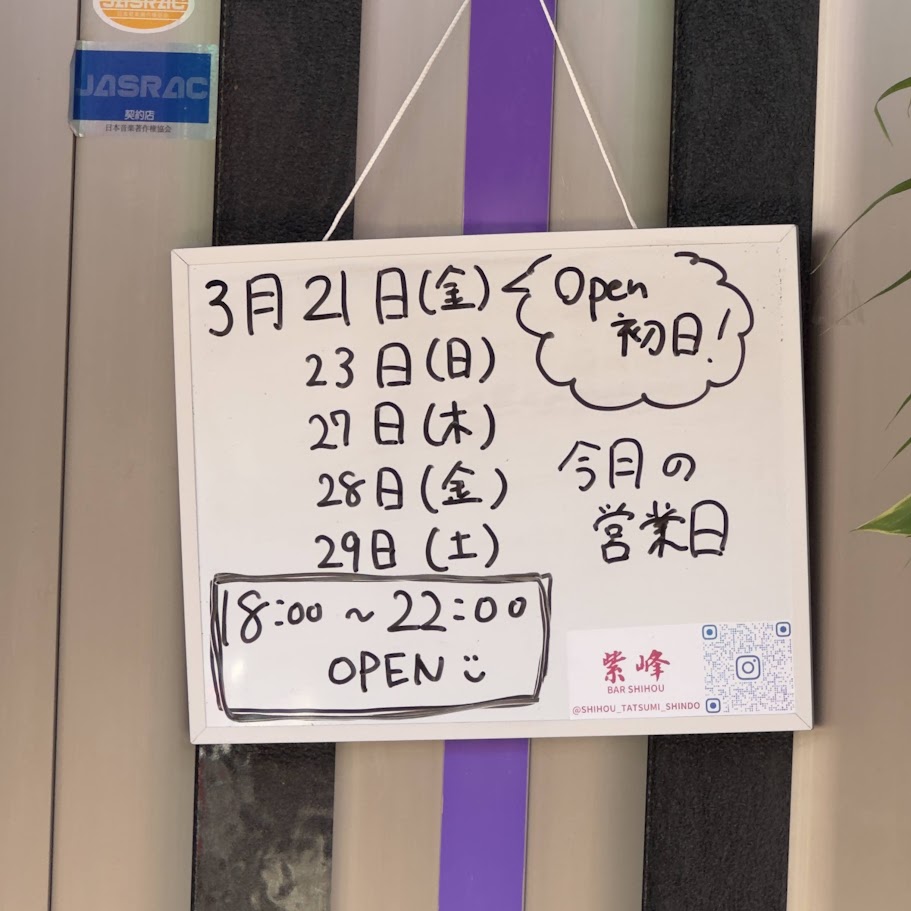 JASRAC
日本音楽著作権協会
JASRAC
契約店
日本音楽著作権協会
3月21日(金)
Open
初日!
23日(日)
27日(木)
28日(金)
29日(土)
今月の
営業日
18:00~22:00
OPEN
紫峰
BAR SHIHOU
@SHIHOU_TATSUMI_SHINDO